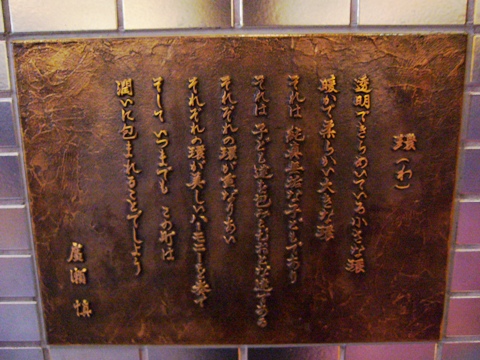 環（わ）
透明できらめいている小さな環
暖かで柔らかい大きな環
それは 純真無垢な子どもであり
それは 子ども達を包みこむおとな達である
それぞれの環が重なりあい
それぞれの環が美しいハーモニーを奏で
そして いつまでも この町は
潤いに包まれることでしょう
廣瀬 慎